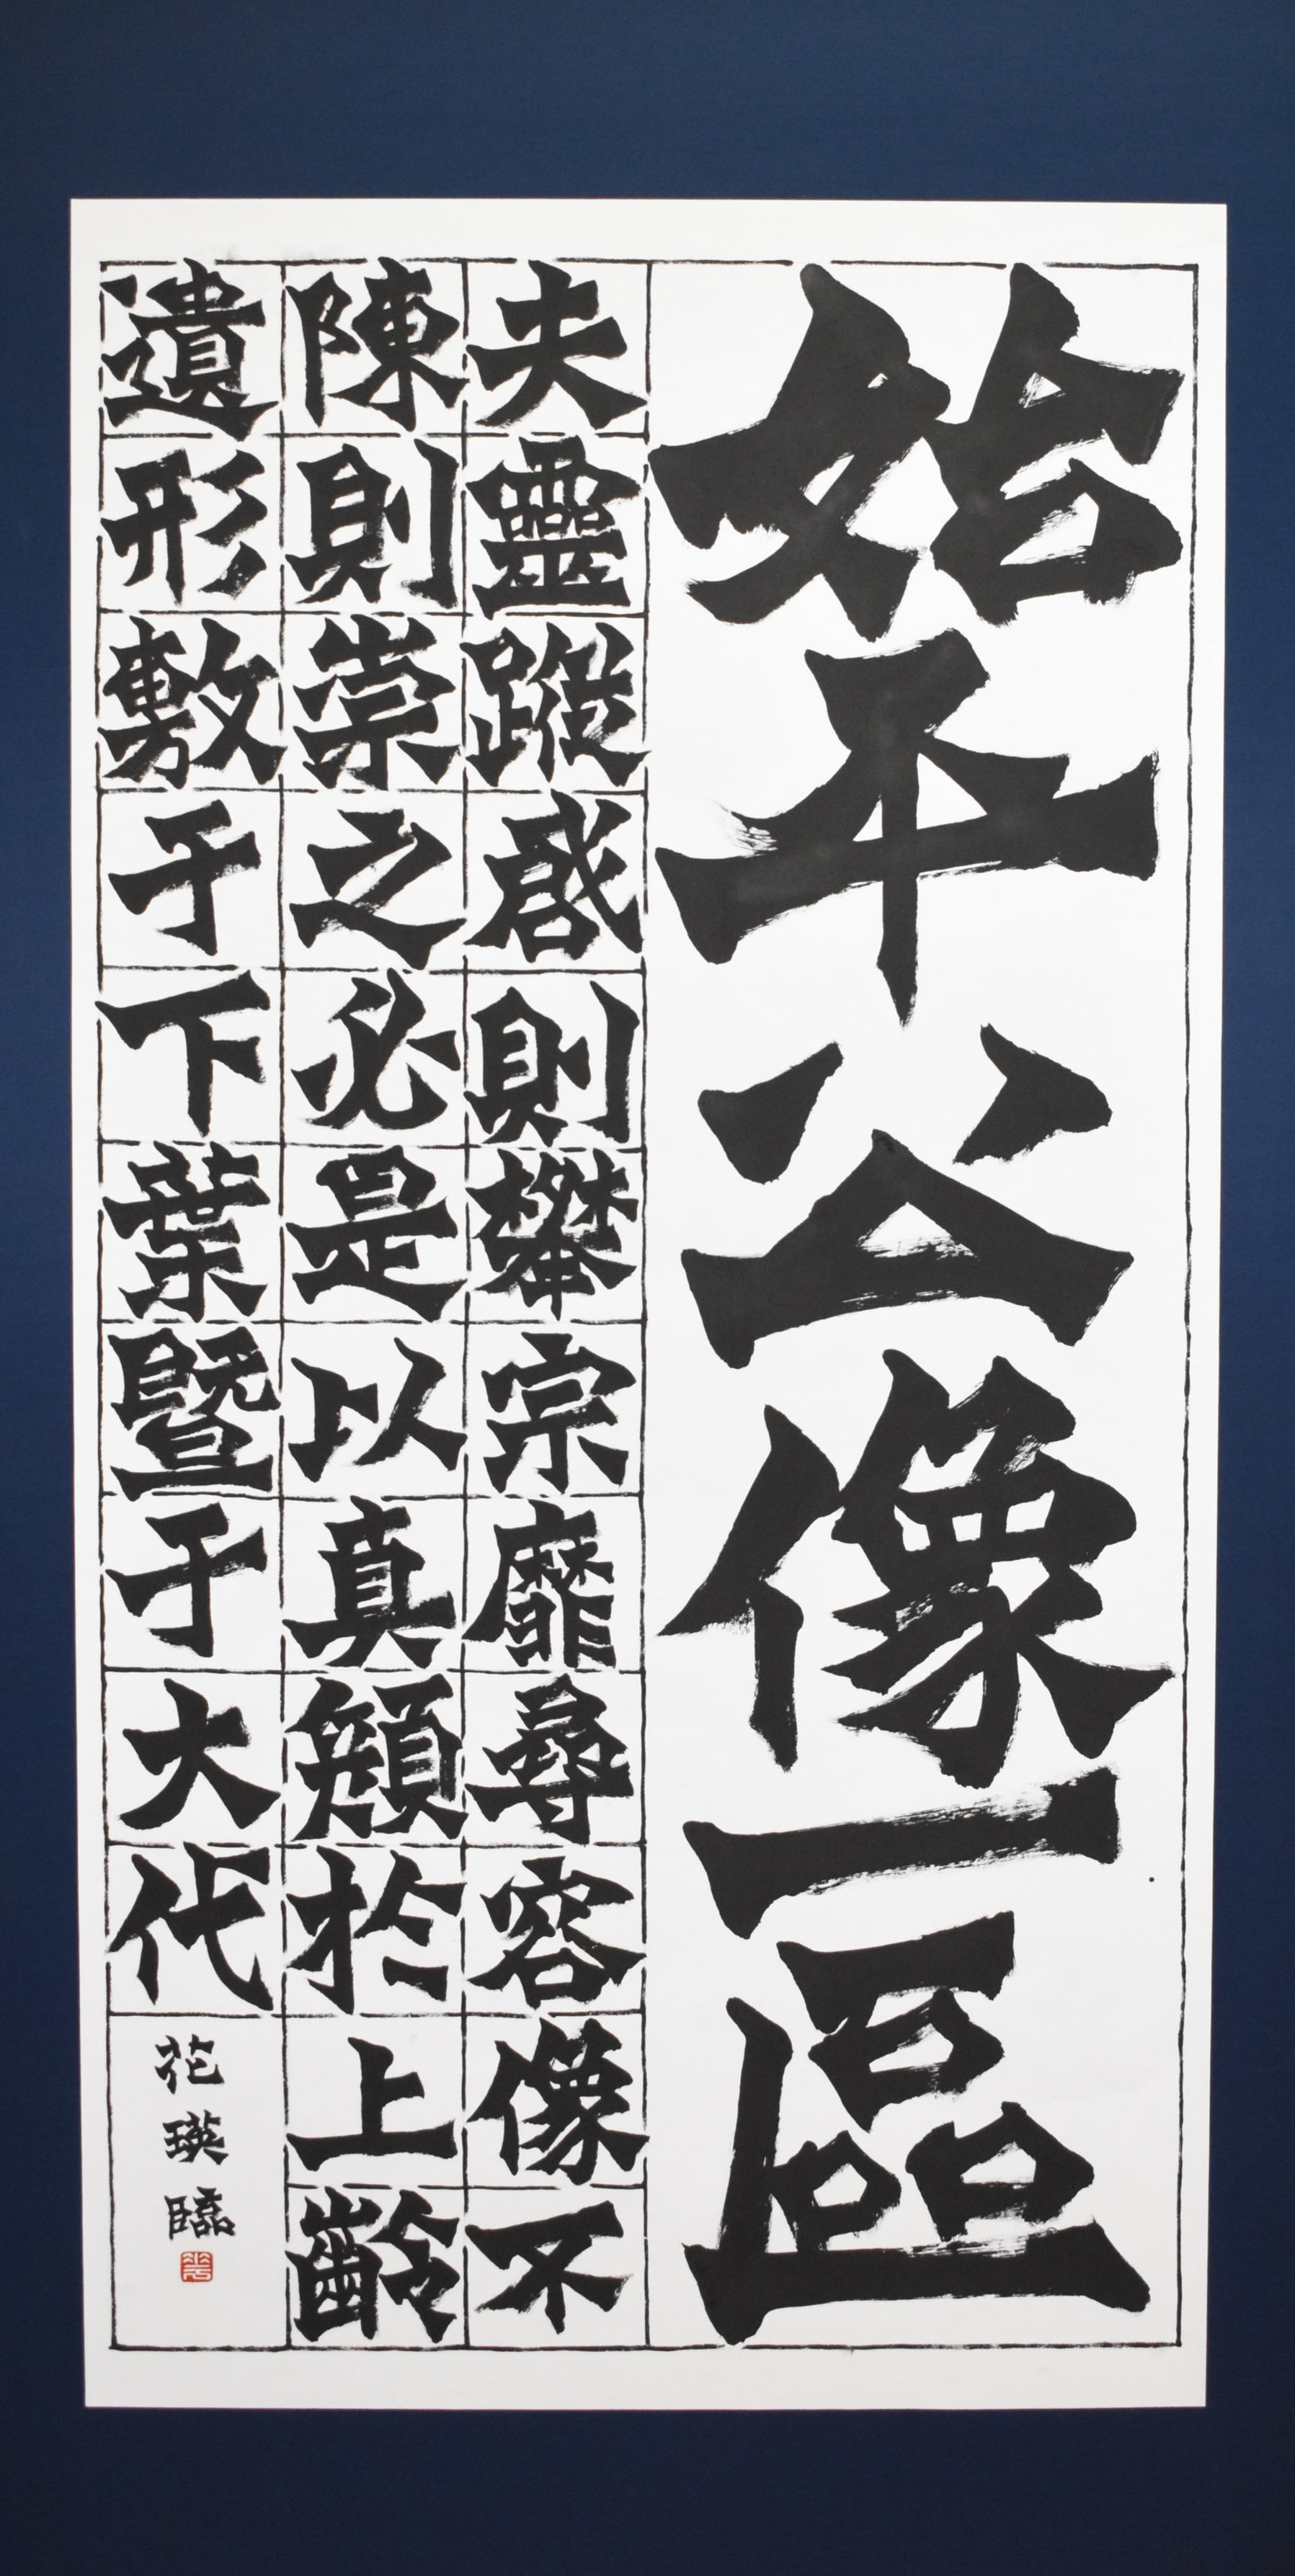 始平公像一區
夫靈蹤啓則攀宗靡尋容像不
陳則崇之必是以真顏於上齡
遺形敷于下葉暨于大代
花瑛臨